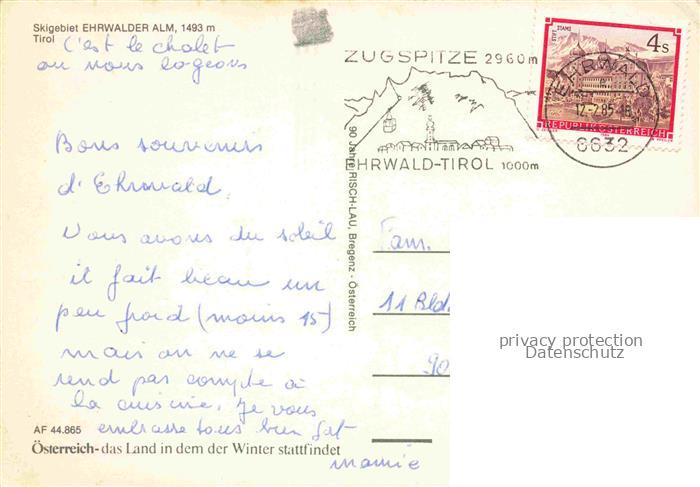 Skigebiet EHRWALDER ALM, 1493 m
Tirol
C'est le chalet
ou nous logeons
Bons souvenirs
d'Ehrwald.
Nous avons du soleil
il fait beau un
peu froid (moins 15)
mais on ne se
rend pas compte à
la cuisine. Je vous
embrasse tous bien fort
mamie
AF 44.865
Österreich - das Land in dem der Winter stattfindet
90 Jahre RISCH-LAU, Bregenz - Österreich
ZUGSPITZE 2960m
EHRWALD-TIROL 1000m
STIFT STAMS
4 S
REPUBLIK ÖSTERREICH
EHRWALD
12.-2.85-18
6632
Fam.
11 Bld.
90
privacy protection
Datenschutz